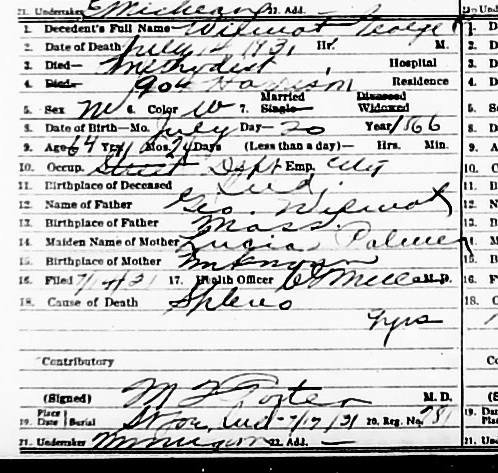 21. Undertaker 22. Add.
1. Decedent's Full Name Wilmot George
2. Date of Death July 14 1931 Hr. M.
3. Died— Methodist Hospital
4. Died— 904 Harrison Residence
5. Sex M 6. Color W 7. Married Single— Divorced Widowed
8. Date of Birth—Mo. July Day— 20 Year 1866
9. Age 64 Yrs. 11 Mos. 24 Days (Less than a day)— Hrs. Min.
10. Occup. Street Dept Emp. City
11. Birthplace of Deceased Ind.
12. Name of Father Geo. Wilmot
13. Birthplace of Father Mass.
14. Maiden Name of Mother Lucia Palmer
15. Birthplace of Mother Unknown
16. Filed 7/ /31 17. Health Officer M.D.
18. Cause of Death
yrs
Contributory
(Signed) M. D.
19. Place Date Burial Ind— 7/17/31 20. Reg. No. 781
21. Undertaker 22. Add. —